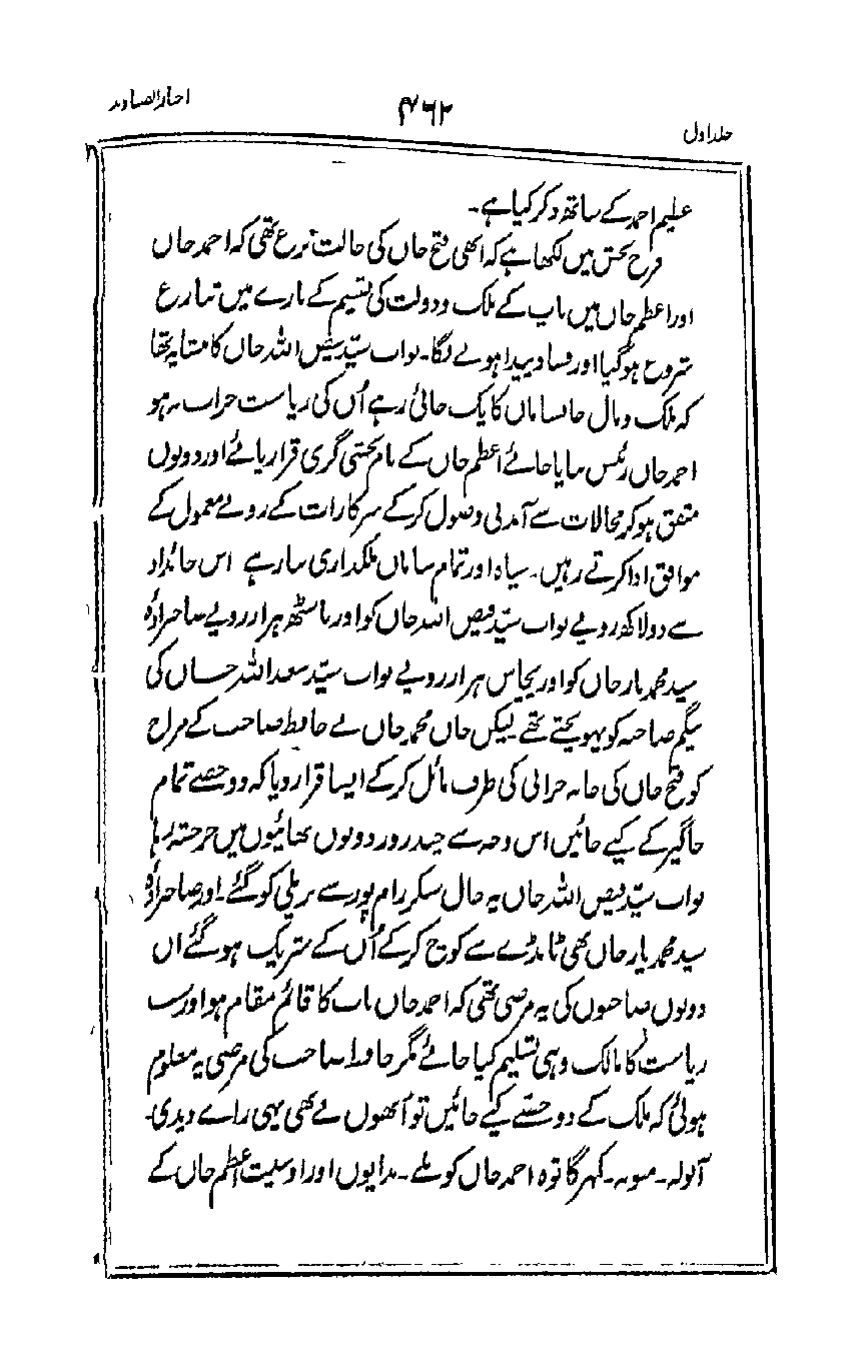 اخبار الصنادید
۴۶۲
جلد اول
علیم احمد کے ساتھ ذکر کیا ہے۔
فرح بخش میں لکھا ہے کہ ابھی فتح خاں کی حالت نزع تھی کہ احمد خاں
اور اعظم خاں میں باپ کے ملک و دولت کی تقسیم کے بارے میں تنازع
شروع ہو گیا اور فساد پیدا ہونے لگا۔ نواب سیّد فیض اللہ خاں کا منشا یہ تھا
کہ ملک و مال خانساماں کا یک جائی رہے اُن کی ریاست خراب نہ ہو
احمد خاں رئیس بنایا جائے اعظم خاں کے نام بخشی گری قرار پائے اور دونوں
متفق ہو کر محالات سے آمدنی وصول کر کے سرکارات کے روپے معمول کے
موافق ادا کرتے رہیں۔ سپاہ اور تمام ساماں ملکداری بنا رہے اس جائداد
سے دو لاکھ روپے نواب سیّد فیض اللہ خاں کو اور ساٹھ ہزار روپے صاحبزادہ
سید محمد یار خاں کو اور پچاس ہزار روپے نواب سیّد سعد اللہ خاں کی
بیگم صاحبہ کو پہونچتے تھے لیکن خاں محمد خاں نے حافظ صاحب کے مزاج
کو فتح خاں کی خانہ خرابی کی طرف مائل کر کے ایسا قرار دیا کہ دو حصے تمام
جاگیر کے کیے جائیں اس وجہ سے چند روز دونوں بھائیوں میں خرخشہ رہا
نواب سیّد فیض اللہ خاں یہ حال سنکر رام پور سے بریلی کو گئے۔ اور صاحبزادہ
سید محمد یار خاں بھی ٹانڈے سے کوچ کر کے اُن کے شریک ہو گئے ان
دونوں صاحبوں کی یہ مرضی تھی کہ احمد خاں باپ کا قائم مقام ہو اور سب
ریاست کا مالک وہی تسلیم کیا جائے مگر حافظ صاحب کی مرضی یہ معلوم
ہوئی کہ ملک کے دو حصّے کیے جائیں تو اُنھوں نے بھی یہی رائے دیدی۔
آنولہ۔ منونہ۔ کہر گانوہ احمد خاں کو ملے۔ بدایوں اور اوسیت اعظم خاں کے